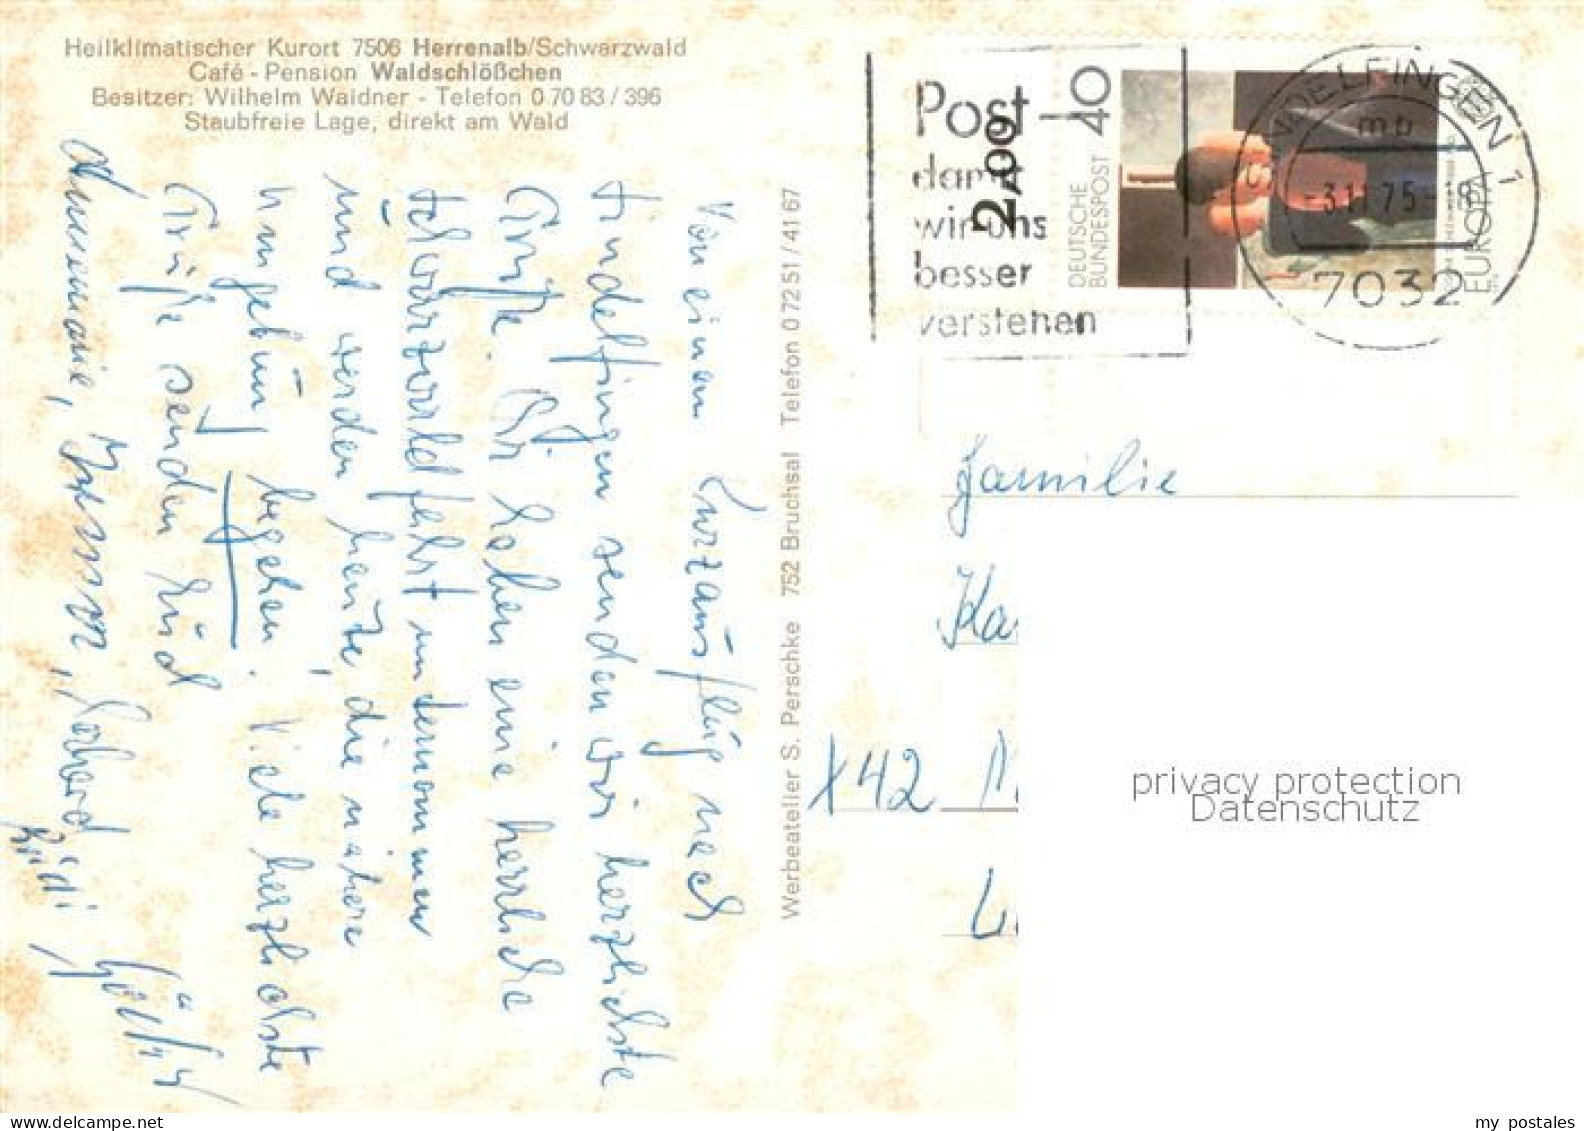 Heilklimatischer Kurort 7506 Herrenalb/Schwarzwald
Café - Pension Waldschlößchen
Besitzer: Wilhelm Waidner - Telefon 0 70 83 / 396
Staubfreie Lage, direkt am Wald
Von einem Kurzausflug nach
Sindelfingen senden wir herzlichste
Grüße. Wir haben eine herrliche
Schwarzwaldfahrt unternommen
und werden heute, die nähere
Umgebung begehen. Viele herzlichste
Grüße senden Euch
Annemarie,
Werbeatelier S. Perschke 752 Bruchsal Telefon 0 72 51 / 41 67
Post
damit
wir uns
besser
verstehen
2.09
40
DEUTSCHE
BUNDESPOST
EUROPA
SINDELFINGEN 1
mb
-3.11.75-18
7032
Familie
Ka
X42 M
L
privacy protection
Datenschutz
my-postcards.com
my postales